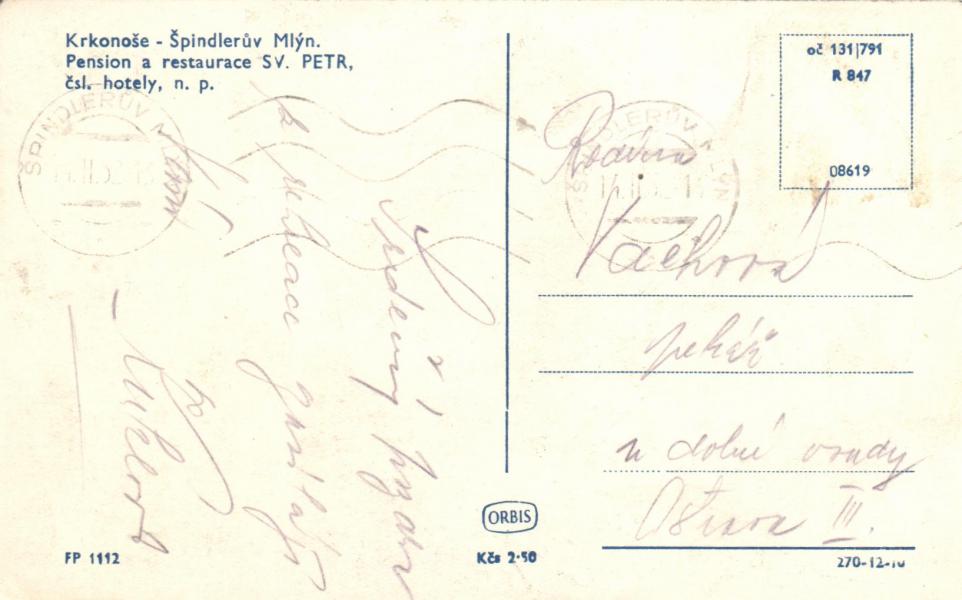 Krkonoše - Špindlerův Mlýn.
Pension a restaurace SV. PETR,
čsl. hotely, n. p.
ŠPINDLERŮV MLÝN
Srdečný pozdrav
z rekreace zasílají
oč 131|791
R 847
08619
ŠPINDLERŮV MLÝN
Rodina
Vachová
pekář
u dolní vrady
Ostrava III.
ORBIS
FP 1112
Kčs 2·50
270-12-10